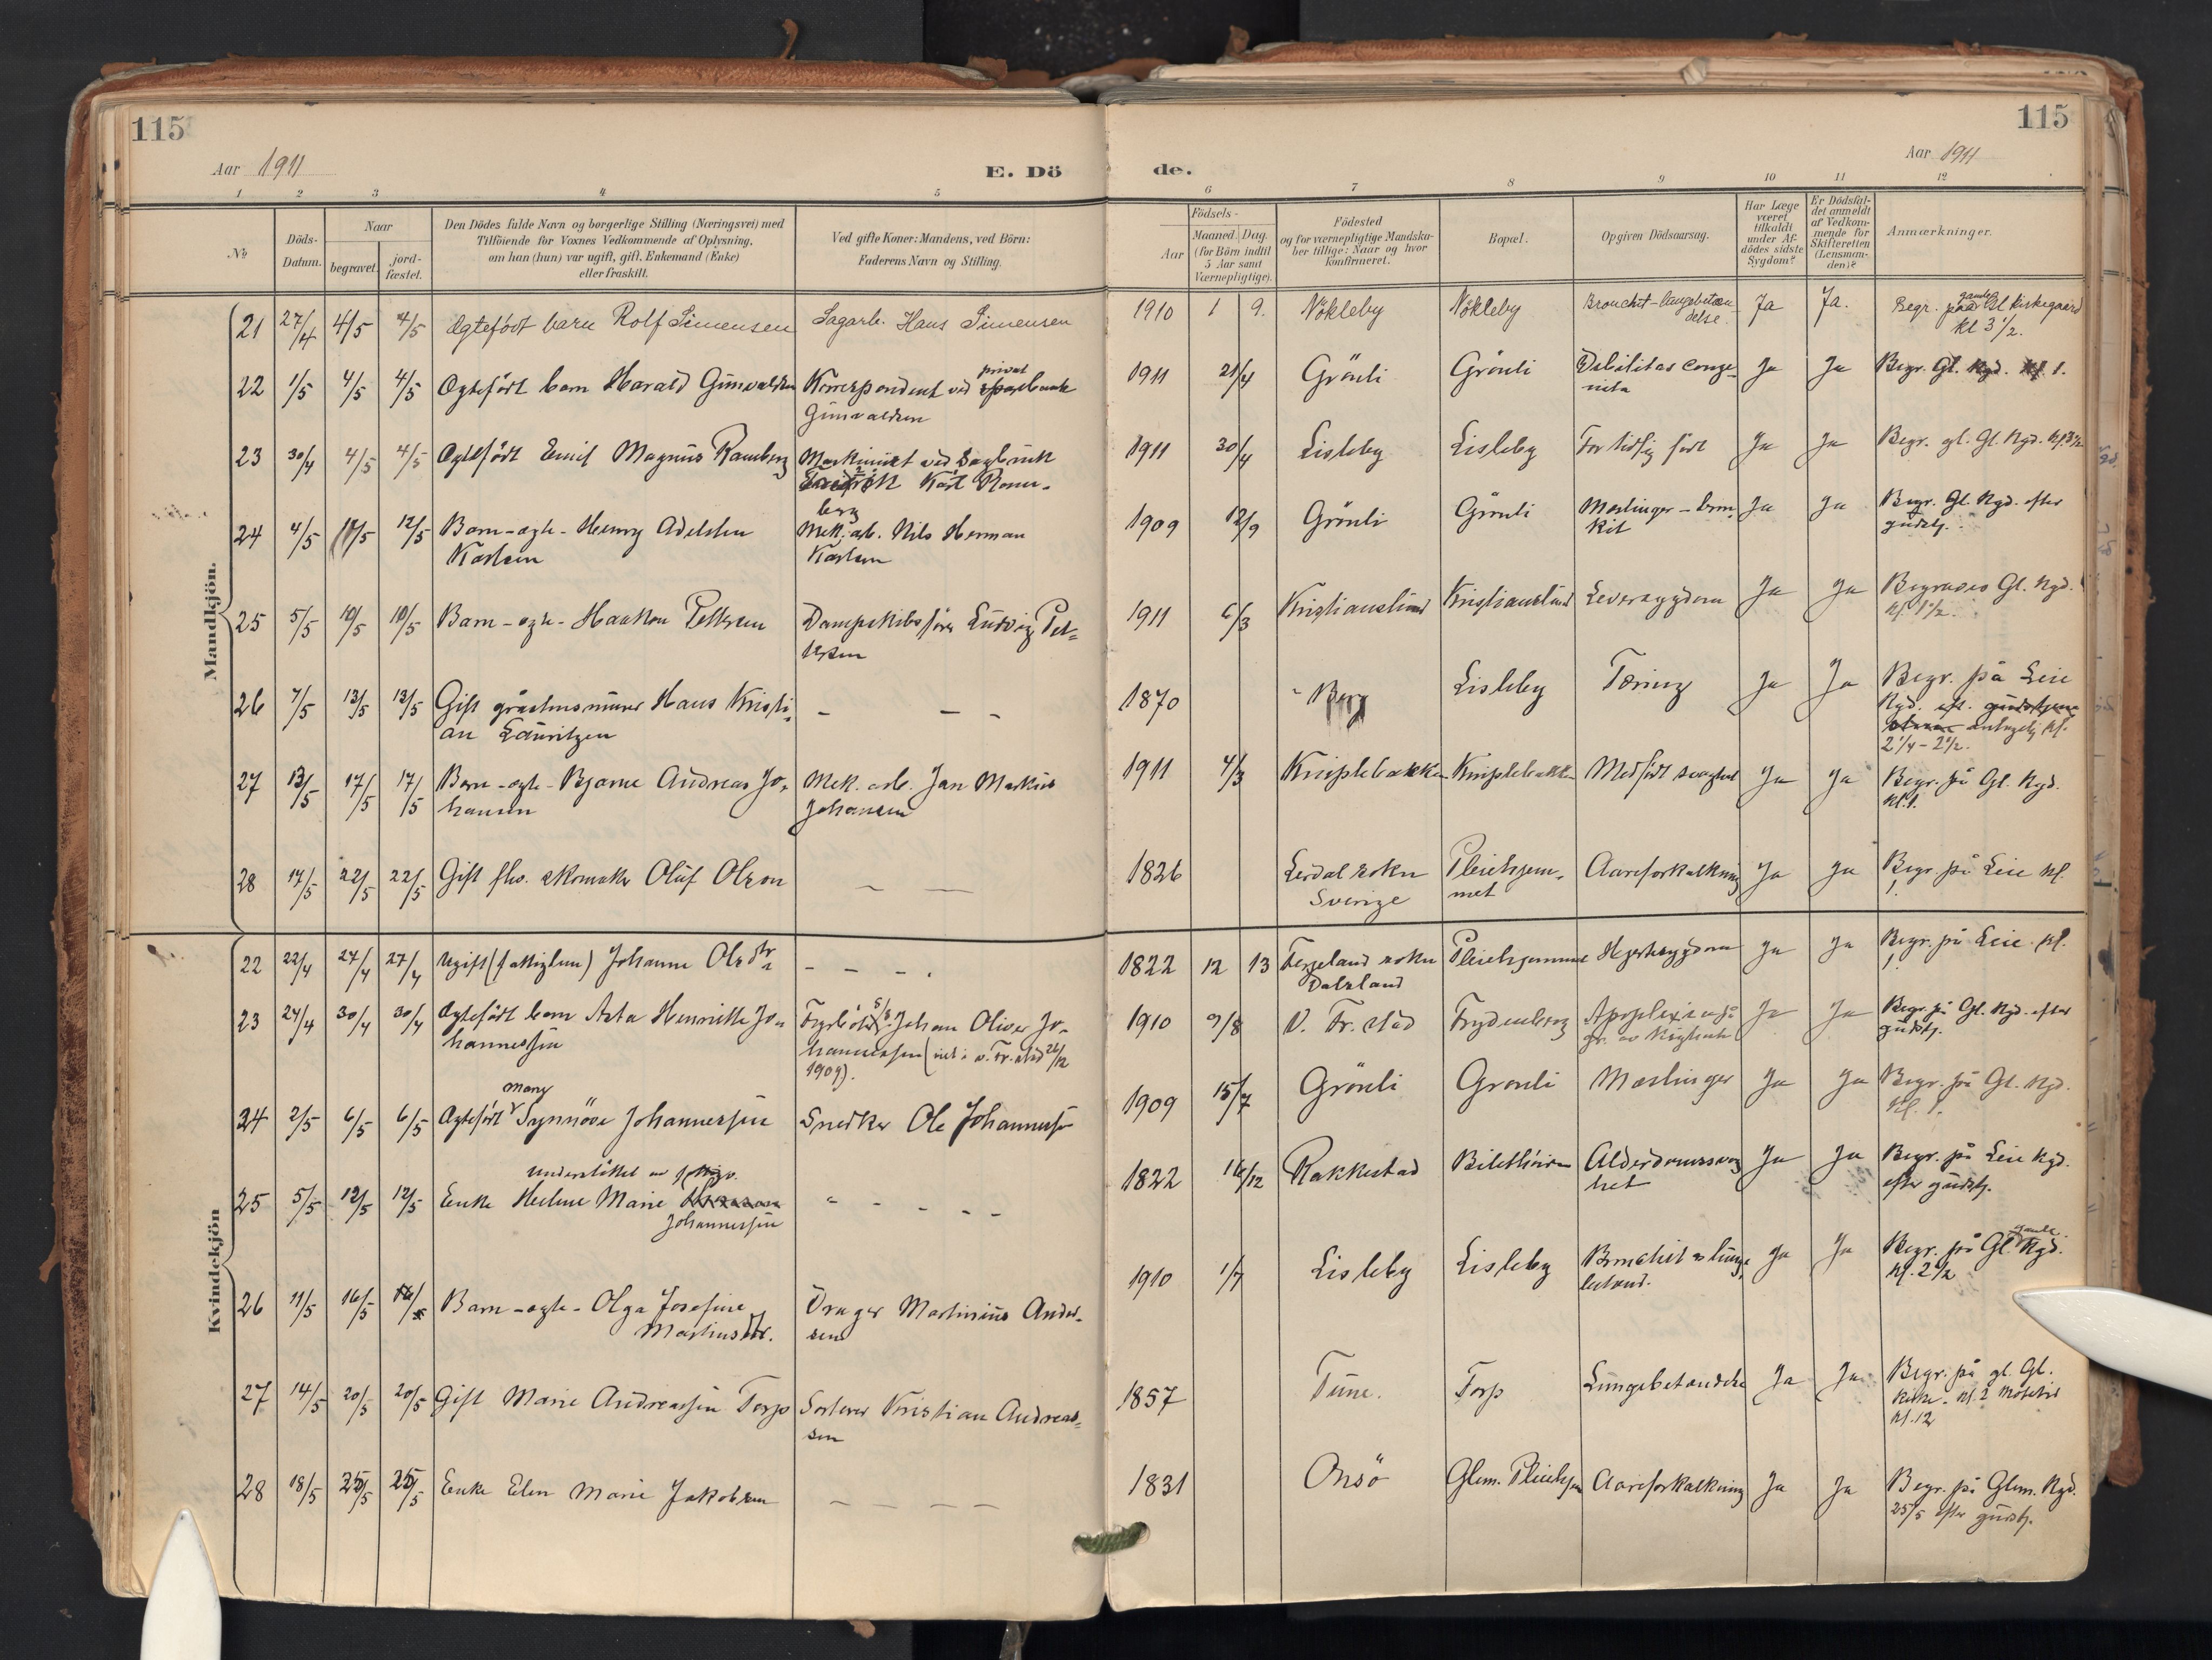 115
Aar 1911
E. Dö
1 2 3 4 5
№
Döds-Datum.
Naar
begravet.
jord-fæstet.
Den Dödes fulde Navn og borgerlige Stilling (Næringsvei) med
Tilföiende for Voxnes Vedkommende af Oplysning,
om han (hun) var ugift, gift, Enkemand (Enke)
eller fraskilt.
Ved gifte Koner: Mandens, ved Börn:
Faderens Navn og Stilling.
Mandkjön.
21 27/4 4/5 4/5 Ægtefödt barn Rolf Simensen Sagarb. Hans Simensen
22 1/5 4/5 4/5 Ægtefödt barn Harald Gunvaldsen Korrespondent ved
privat
Gunvaldsen
23 30/4 4/5 4/5 Ægtefödt Emil Magnus Ramberg Maskinist ved Sagbruk
Karl Ram-
berg
24 4/5 12/5 Barn - ægte - Henry Adelsten Mek. arb. Nils Herman
Karlsen Karlsen
25 5/5 10/5 10/5 Barn - ægte - Haakon Pettersen Dampskibsförer Ludvig Pet-
tersen
26 7/5 13/5 13/5 Gift gråstensmurer Hans Kristi- - - -
an Lauritzen
27 13/5 17/5 17/5 Barn - ægte - Bjarne Andreas Jo- Mek. arb. Jan Markus
hansen Johansen
28 17/5 22/5 22/5 Gift fhv. skomaker Oluf Olson - -
Kvindekjön
22 22/4 27/4 27/4 Ugift (fattiglem) Johanne Olsdtr - - - -
23 24/4 30/4 30/4 Ægtefödt barn Asta Henriette Jo- Fyrböter Johan Oliver Jo-
hannessen hannessen (viet i v. Fr.stad 26/12
1909).
Mary
24 2/5 6/5 6/5 Ægtefödt Synnöve Johannessen Snedker Ole Johannessen
Understöttet av
25 5/5 12/5 12/5 Enke Helene Marie - - - - -
Johannessen
26 11/5 16/5 16/5 Barn - ægte - Olga Josefine Drager Martinius Ander-
Martinsdtr. sen
27 14/5 20/5 20/5 Gift Marie Andreassen Torp Sorterer Kristian Andreas-
sen
28 18/5 25/5 25/5 Enke Elen Marie Jakobsen - - - -
115
Aar 1911
de.
6 7 8 9 10 11 12
Födsels-
Aar
Maaned. Dag.
(for Börn indtil
5 Aar samt
Værnepligtige).
Födested
og for værnepligtige Mandska-
ber tillige: Naar og hvor
konfirmeret.
Bopæl.
Opgiven Dödsaarsag.
Har Læge
været
tilkaldt
under Af-
dödes sidste
Sygdom?
Er Dödsfal-
det anmeldt
af Vedkom-
mende for
Skifteretten
(Lensman-
den)?
Anmærkninger.
1910 1 9. Nökleby Nökleby Bronchit-lungebetæn- Ja Ja. Begr. paa gamle Gl. kirkegaard
delse. kl 3 1/2.
1911 21/4 Grönli Grönli Debilitas conge- Ja Ja Begr. Gl. Kgd. kl. 1.
nita
1911 30/4 Lisleby Lisleby For tidlig födt Ja Ja Begr. gl. Gl. Kgd. kl. 3 1/2
1909 12/9 Grönli Grönli Meslinger - bron- Ja Ja Begr. Gl. Kgd. efter
kit gudstj.
1911 6/3 Kristianslund Kristianslund Leversygdom Ja Ja Begraves Gl. Kgd.
kl. 1 1/2.
1870 Berg Lisleby Tæring Ja Ja Begr. på Leie
Kgd.
antagelig kl.
2 1/4 - 2 1/2.
1911 4/3 Kniplebakken Kniplebakken Medfödt svaghet Ja Ja Begr. på Gl. Kgd.
kl. 1.
1826 Lerdal sokn Pleiehjem- Aareforkalkning Ja Ja Begr på Leie kl.
Sverige met 1.
1822 12 13 sokn Pleiehjemmet Hjertesygdom Ja Ja Begr. på Leie kl.
Dalsland 1.
1910 9/8 V. Fr. stad Frydenberg Ja Ja Begr. på Gl. Kgd. efter
gudstj.
1909 15/7 Grönli Grönli Mæslinger Ja Ja Begr. på Gl. Kgd.
kl. 1.
1822 16/12 Rakkestad Alderdomssvag- Ja Ja Begr. på Leie Kgd.
het efter gudstj.
1910 1/7 Lisleby Lisleby Bronchit & lunge- Ja Ja Begr. på Gl. gamle Kgd.
betænd. kl. 2 1/2
1857 Tune. Torp Lungebetændelse Ja Ja Begr. på gl. Gl.
kirke - kl. 2 Mötetid
kl. 12
1831 Onsö Glem. Pleiehjem Aareforkalkning Ja Ja Begr. på Glem. Kgd.
25/5 efter gudstj.